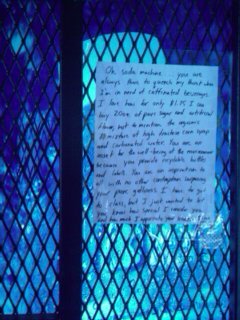 Oh soda machine... you are
always there to quench my thirst when
I'm in need of caffeinated beverages.
I love how for only $1.75 I can
buy 20oz of pure sugar and artificial
flavor, not to mention the orgasmic
mixture of high fructose corn syrup
and carbonated water. You are an
asset for the well-being of the environment
because you provide recyclable bottles
and labels. You are an inspiration to
all with no other contraptions surpassing
your pure I have to get
to class, but I just wanted to let
you know how special I consider you
and how much I appreciate your